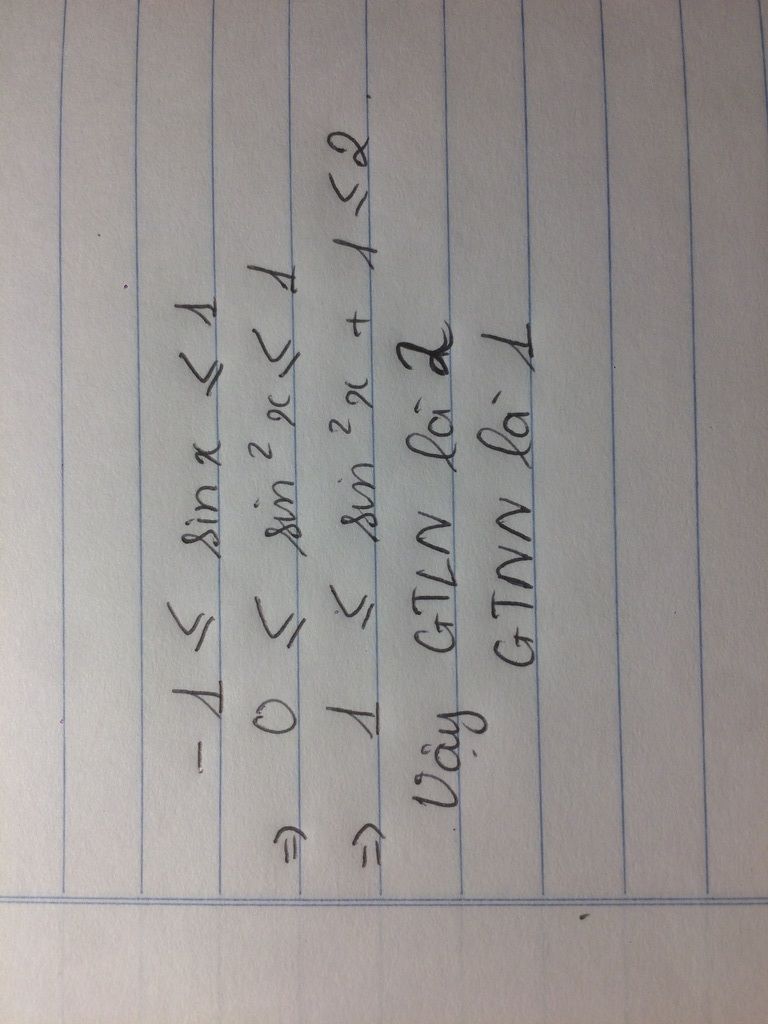 - 1 ≤ sin x ≤ 1
⇒ 0 ≤ sin² x ≤ 1
⇒ 1 ≤ sin² x + 1 ≤ 2.
Vậy GTLN là 2
GTNN là 1